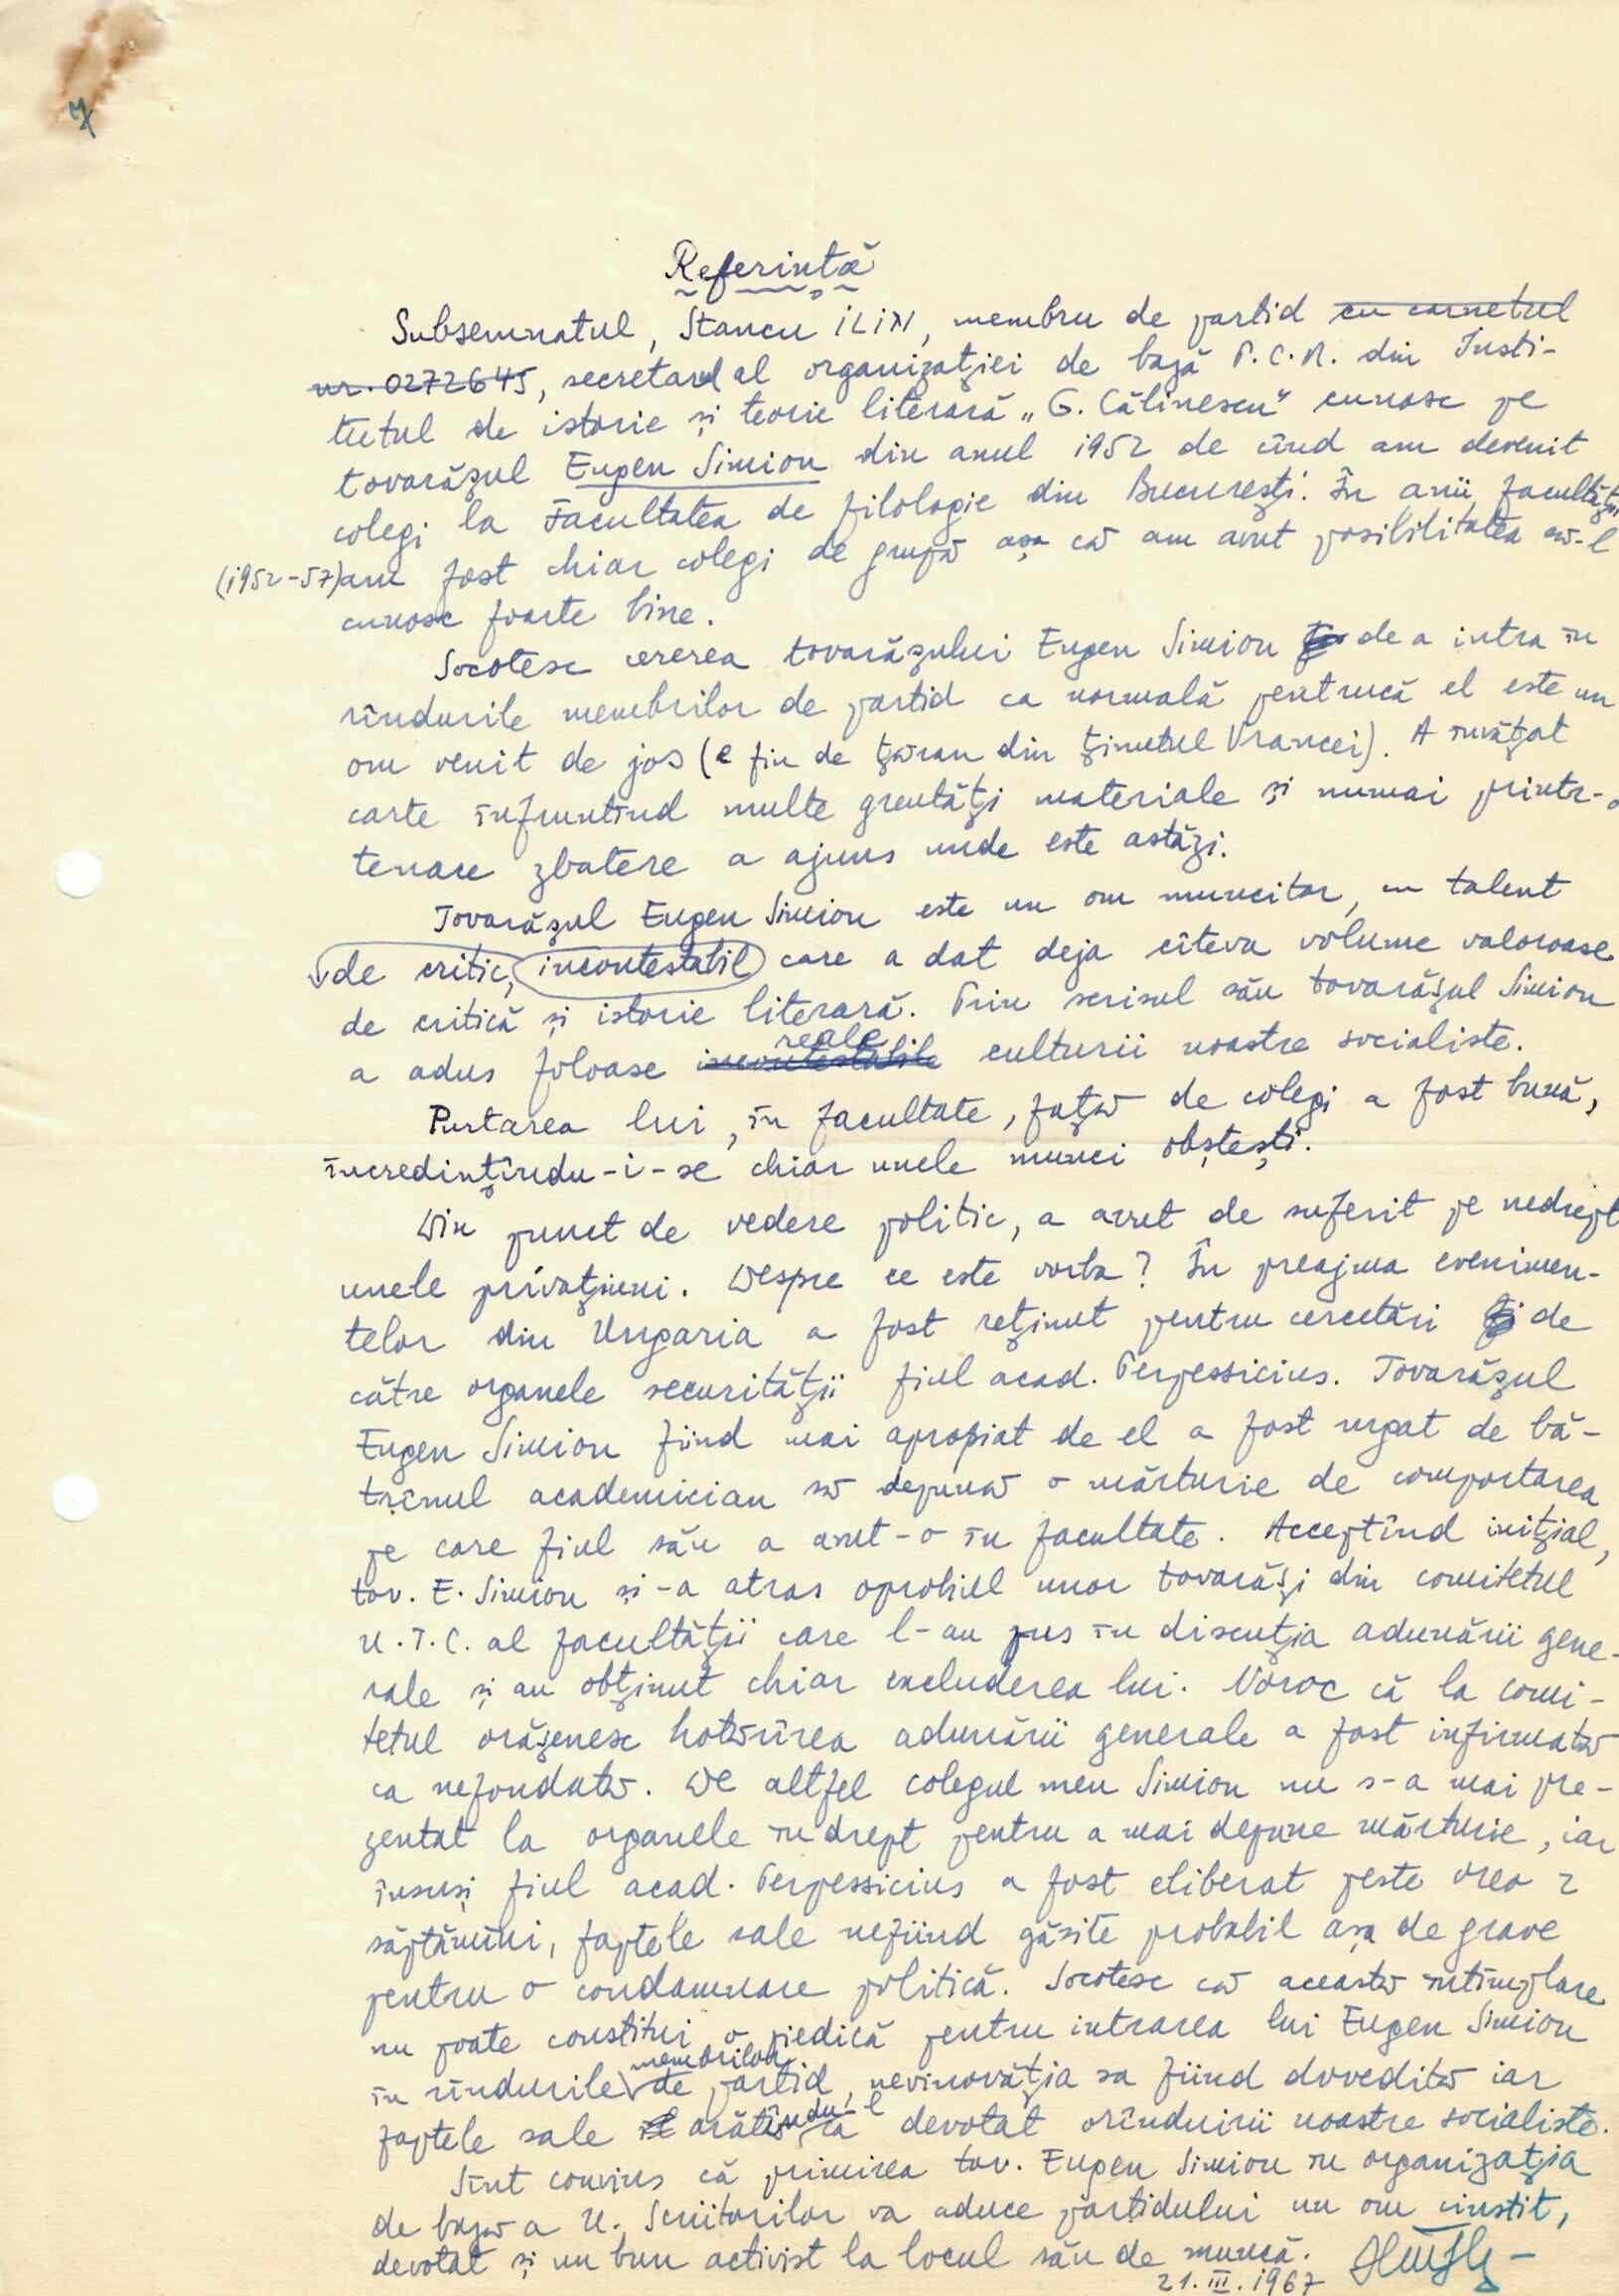 7
Referință
Subsemnatul, Stancu ILIN, membru de partid cu carnetul
nr. 0272645, secretarul al organizației de bază P.C.R. din Insti-
tutul de istorie și teorie literară „G. Călinescu" cunosc pe
tovarășul Eugen Simion din anul 1952 de cînd am devenit
colegi la Facultatea de filologie din București. În anii facultății
(1952-57) am fost chiar colegi de grupă așa că am avut posibilitatea să-l
cunosc foarte bine.
Socotesc cererea tovarășului Eugen Simion de a intra în
rîndurile membrilor de partid ca normală pentrucă el este un
om venit de jos (e fiu de țăran din ținutul Vrancei). A învățat
carte înfruntînd multe greutăți materiale și numai printr-o
tenace zbatere a ajuns unde este astăzi.
Tovarășul Eugen Simion este un om muncitor, un talent
de critic, incontestabil care a dat deja cîteva volume valoroase
de critică și istorie literară. Prin scrisul său tovarășul Simion
reale
a adus foloase incontestabile culturii noastre socialiste.
Purtarea lui, în facultate, față de colegi a fost bună,
încredințîndu-i-se chiar unele munci obștești.
Din punct de vedere politic, a avut de suferit pe nedrept
unele privațiuni. Despre ce este vorba? În preajma evenimen-
telor din Ungaria a fost reținut pentru cercetări de
către organele securității fiul acad. Perpessicius. Tovarășul
Eugen Simion fiind mai apropiat de el a fost rugat de bă-
trînul academician să depună o mărturie de comportarea
pe care fiul său a avut-o în facultate. Acceptînd inițial,
tov. E. Simion și-a atras oprobiul unor tovarăși din comitetul
U.T.C. al facultății care l-au pus în discuția adunării gene-
rale și au obținut chiar excluderea lui. Noroc că la comi-
tetul orășenesc hotărîrea adunării generale a fost infirmată
ca nefondată. De altfel colegul meu Simion nu s-a mai pre-
zentat la organele în drept pentru a mai depune mărturie, iar
însuși fiul acad. Perpessicius a fost eliberat peste vreo 2
săptămîni, faptele sale nefiind găsite probabil așa de grave
pentru o condamnare politică. Socotesc că această întîmplare
nu poate constitui o piedică pentru intrarea lui Eugen Simion
membrilor
în rîndurile de partid, nevinovăția sa fiind dovedită iar
faptele sale arătîndu-l ca devotat orînduirii noastre socialiste.
Sînt convins că primirea tov. Eugen Simion în organizația
de bază a U. Scriitorilor va aduce partidului un om cinstit,
devotat și un bun activist la locul său de muncă.
21.III.1967